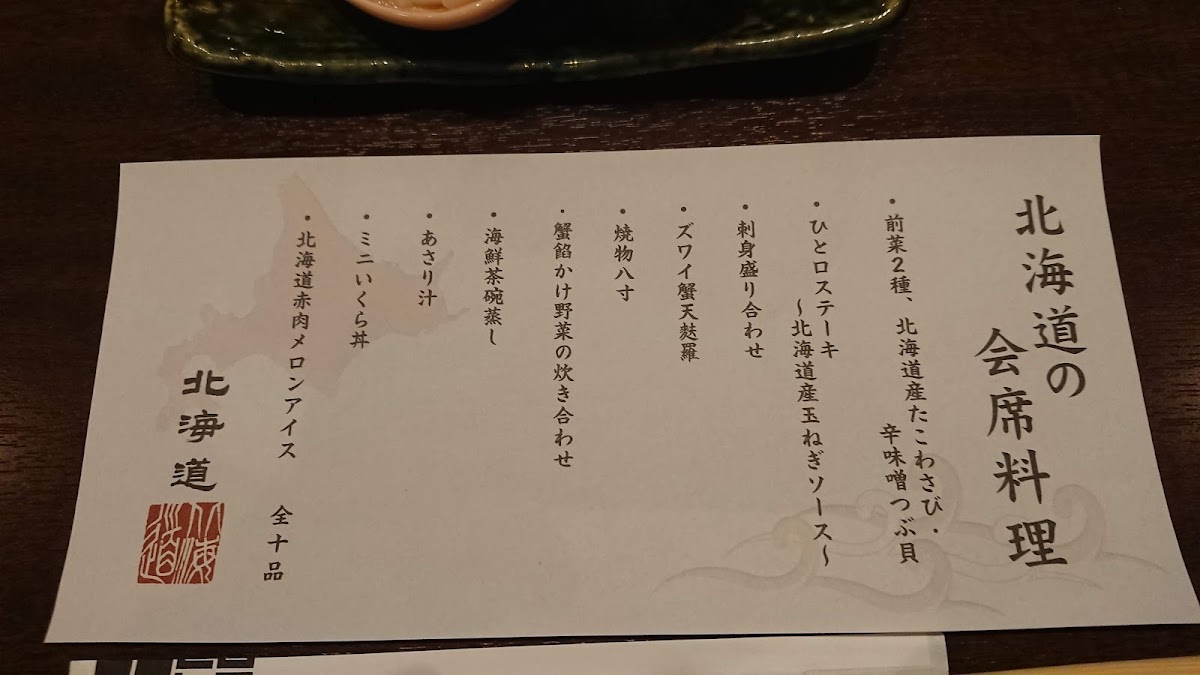 北海道の
会席料理
・前菜2種、北海道産たこわさび・
辛味噌つぶ貝
・ひと口ステーキ
～北海道産玉ねぎソース～
・刺身盛り合わせ
・ズワイ蟹天麩羅
・焼物八寸
・蟹餡かけ野菜の炊き合わせ
・海鮮茶碗蒸し
・あさり汁
・ミニいくら丼
・北海道赤肉メロンアイス
全十品
北海道
北海道